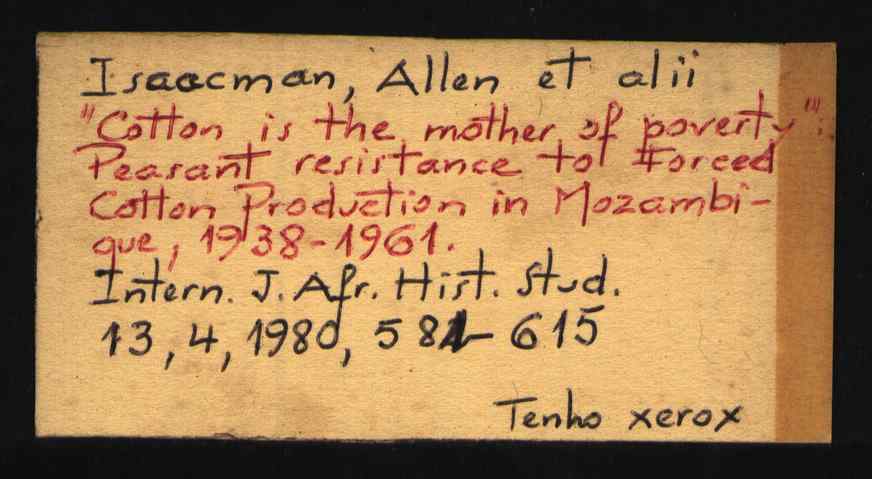 Isaacman, Allen et alii
"Cotton is the mother of poverty":
Peasant resistance to Forced
Cotton Production in Mozambi-
que, 1938-1961.
Intern. J. Afr. Hist. Stud.
13, 4, 1980, 581-615
Tenho xerox